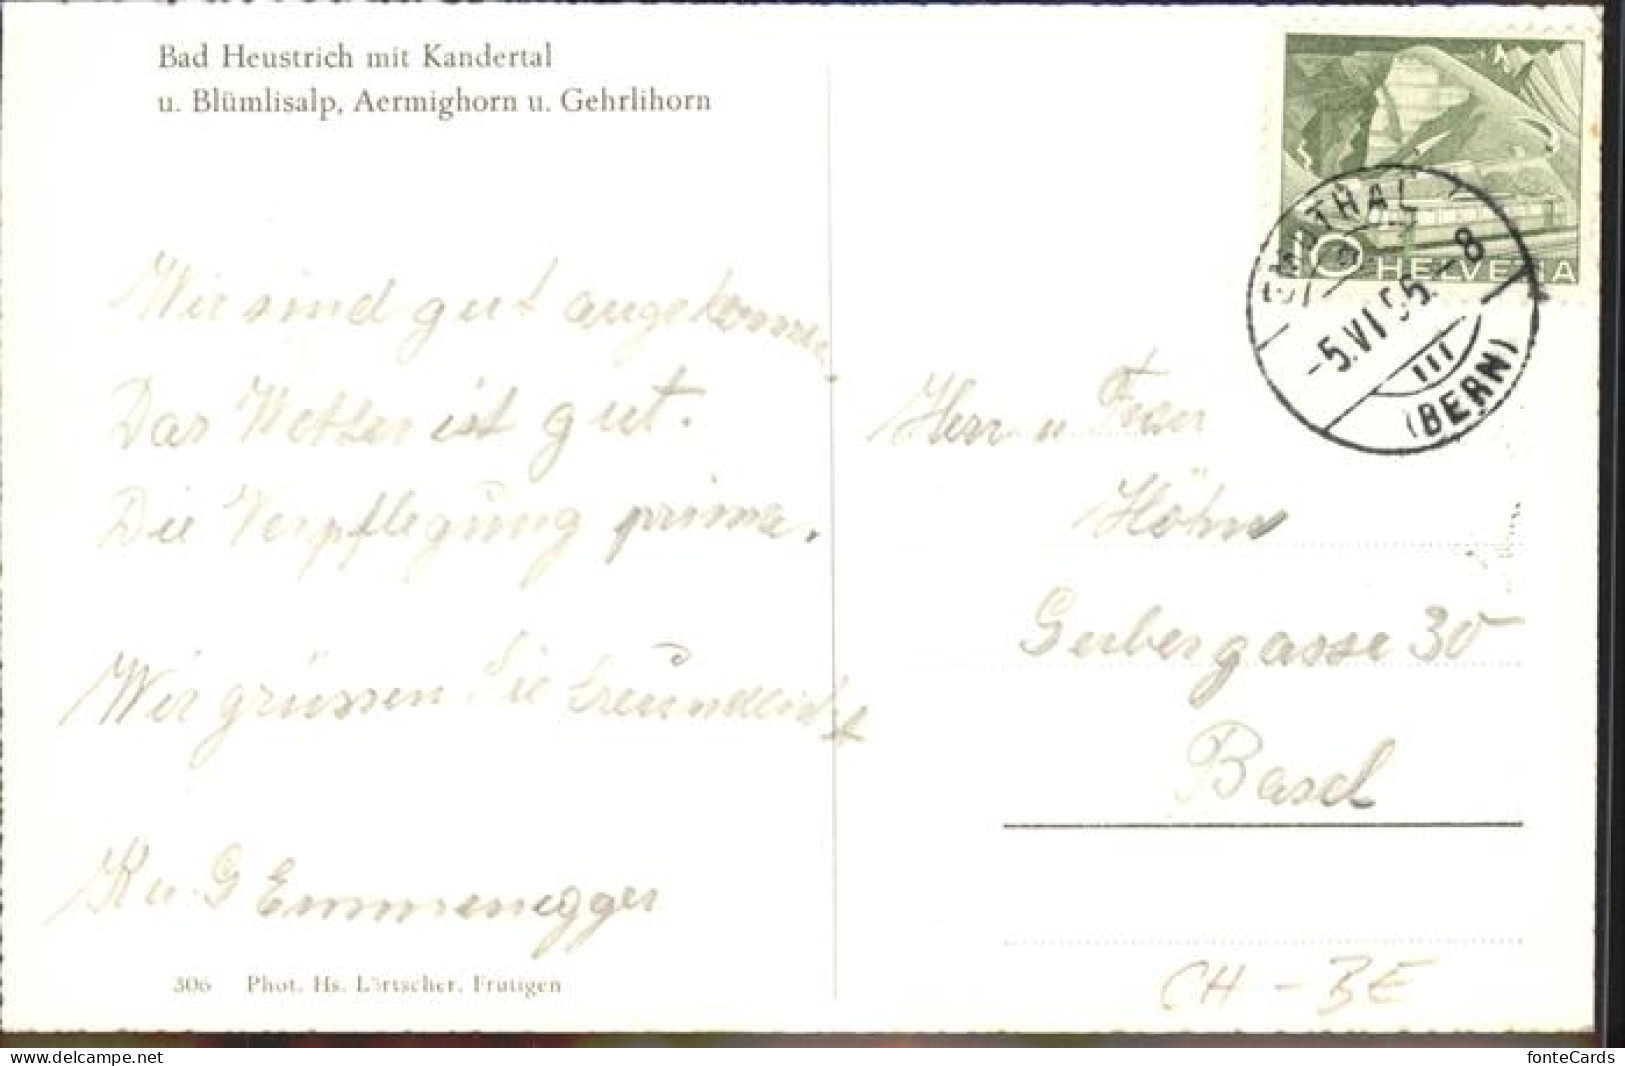 Bad Heustrich mit Kandertal
u. Blümlisalp, Aermighorn u. Gehrlihorn
Wir sind gut angekommen.
Das Wetter ist gut.
Die Verpflegung prima.
Wir grüssen Sie freundlichst
K u. G Emmenegger
306 Phot. Hs. Lörtscher, Frutigen
10 HELVETIA
EMDTHAL
-5.VI.56.-8
III
(BERN)
Herr u Frau
Höhn
Gerbergasse 30
Basel
CH - BE
www.delcampe.net
fonteCards